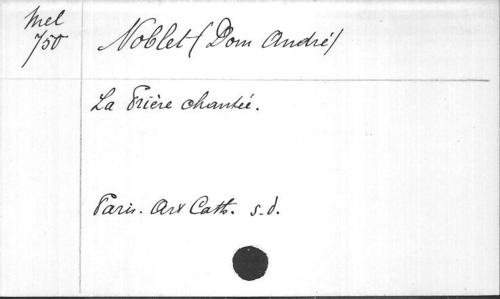 Mel
750
Noblet (Dom André)
La Prière chantée.
Paris. Art Cath. s.d.